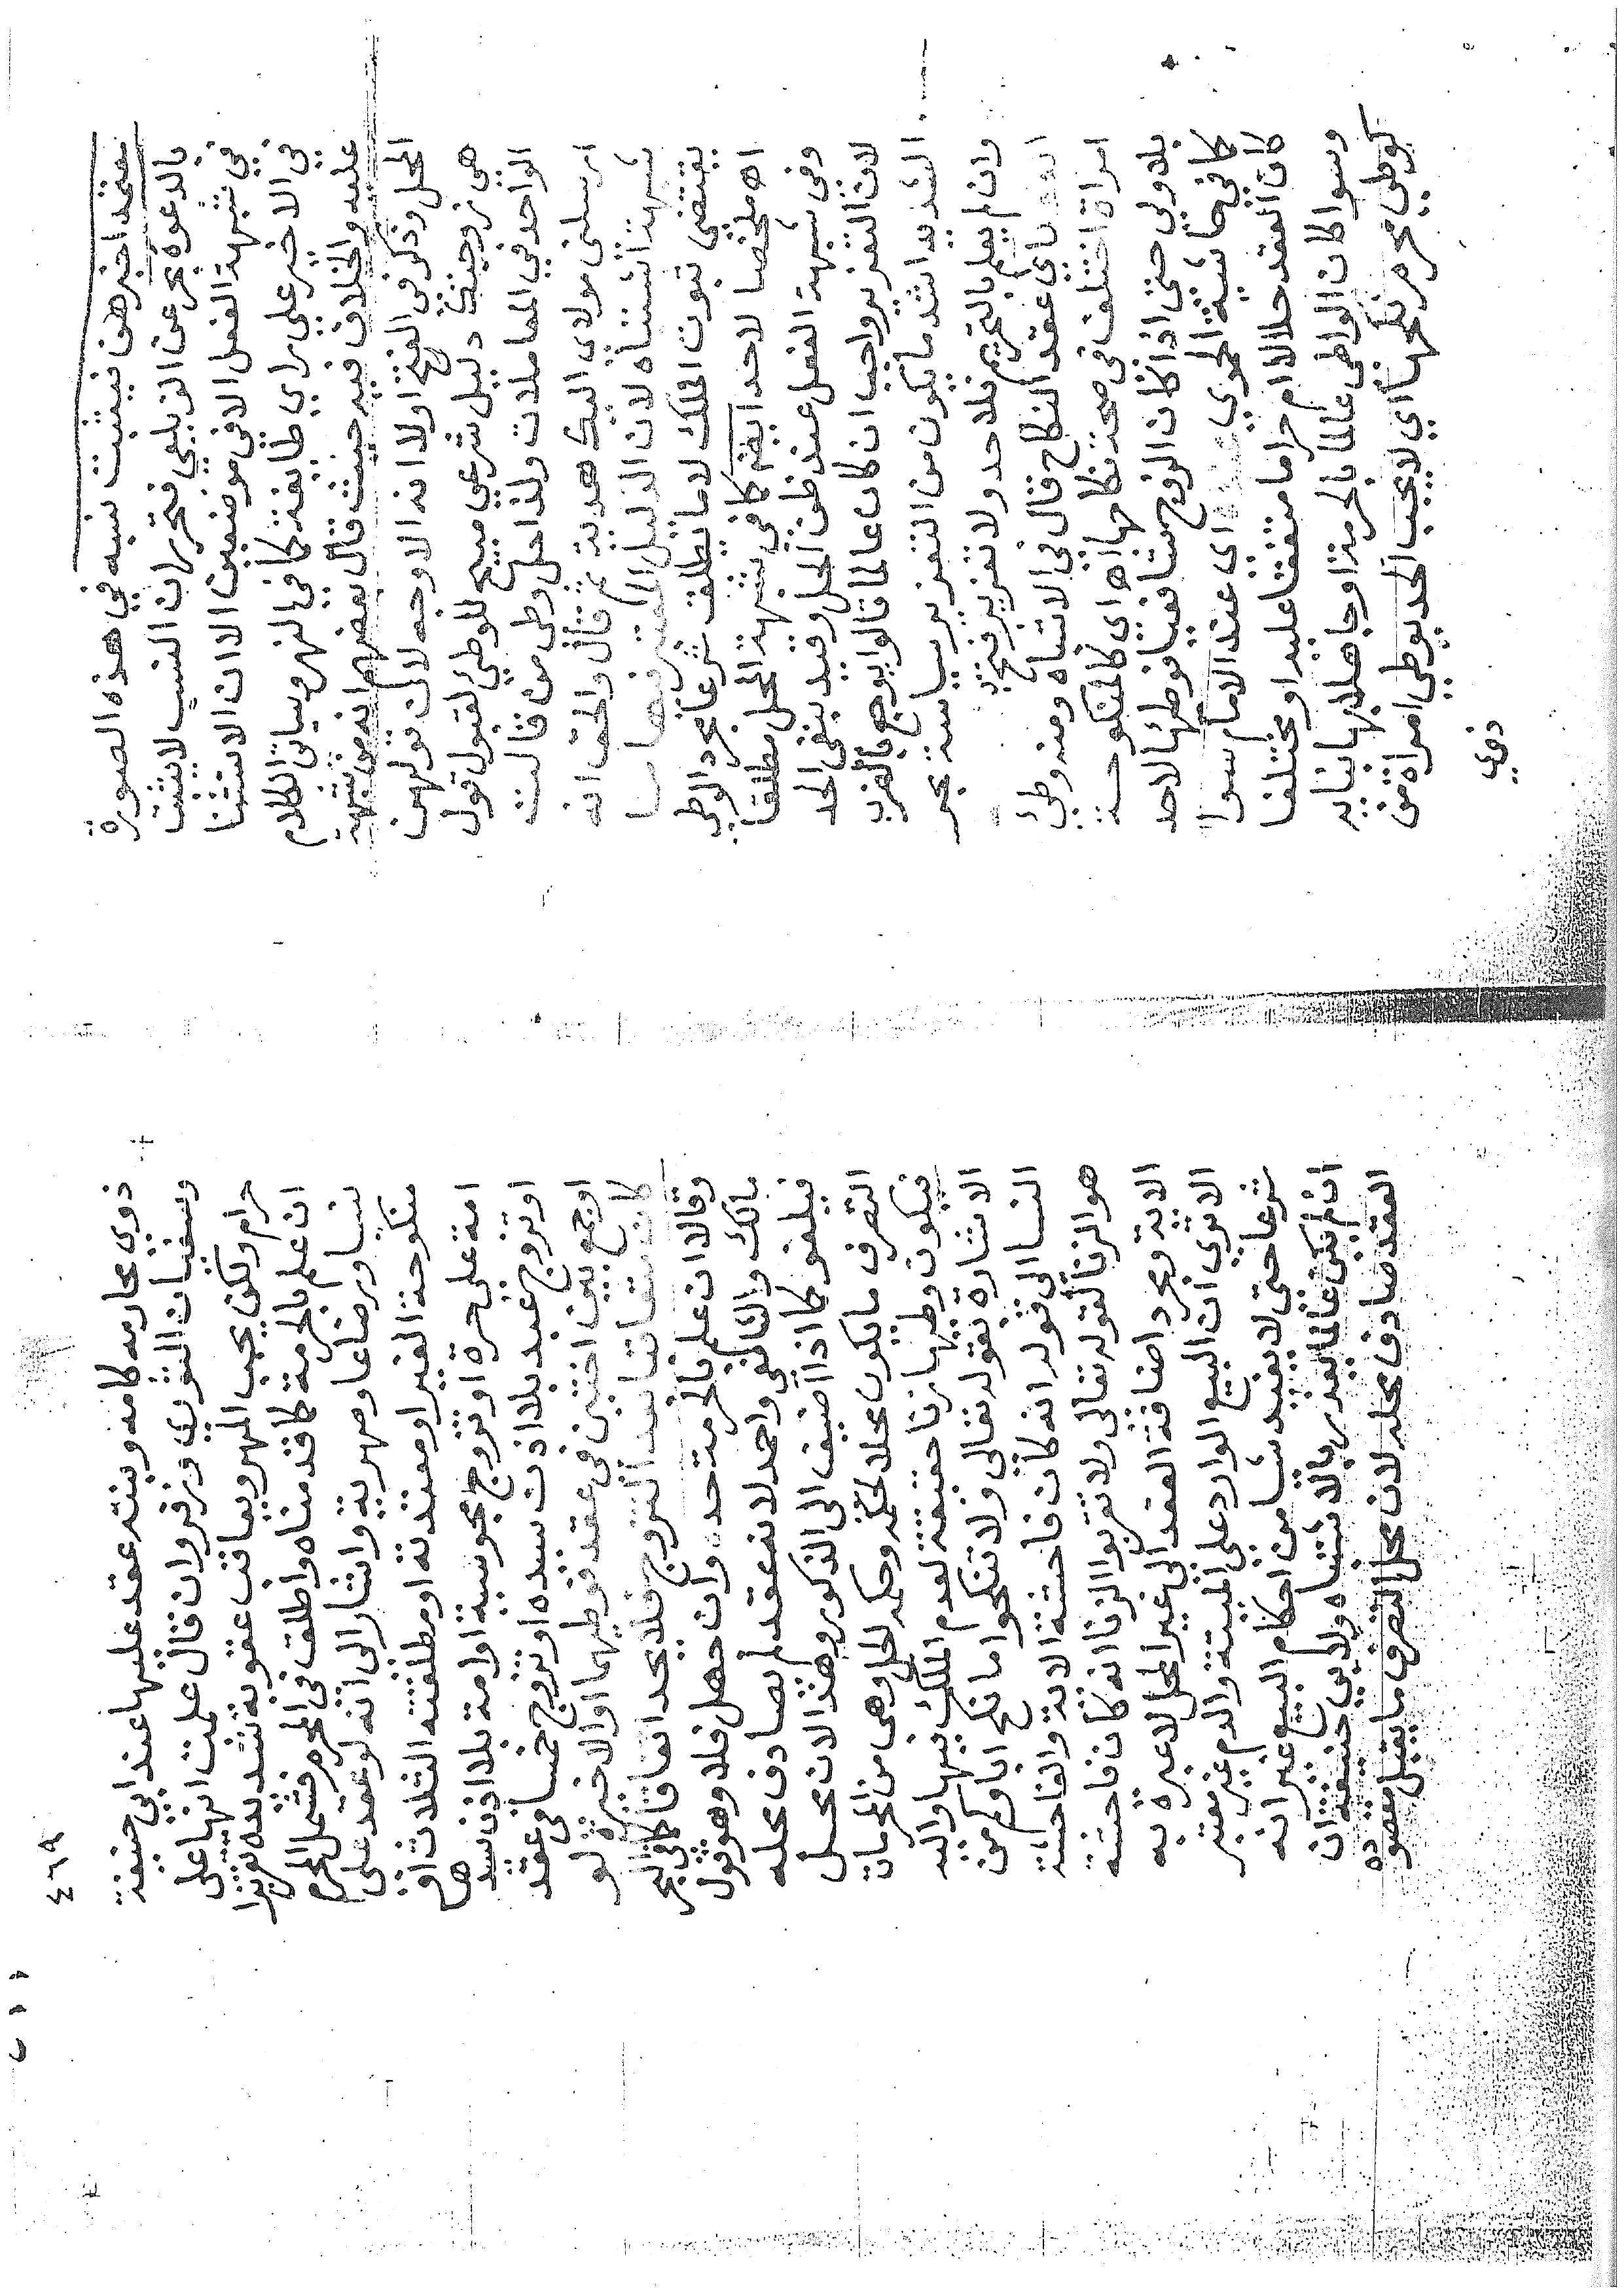 معتمدا خبرهن فيثبت نسبه في هذه الصورة
بالدعوة بحر عن الزيلعي فتحرر ان النسب لا يثبت
في شبهة الفعل الا في موضعين الا ان الاستثنا
في الاخير على راي طايفة كما في النهر وسياتي الكلام
عليه والخلاف فيه حيث قال بعضهم انه من شبهة
المحل وذكر في الفتح اولا انه الاوجه لان قولهن
هي زوجتك دليل شرعي مبيح للوطئ لقبول قول
الواحد في المعاملات ولذا حل وطئ من قالت
ارسلني مولاي اليك هدية ثم قال والحق انه
شبهة اشتباه لان الدليل المعتبر فيها ما
يقتضي ثبوت الملك لا ما يطلق شرعا مجرد الوطئ
اه ملخصا لا حد ايضا كما في شبهة المحل مطلقا
وفي شبهة الفعل عند ظن الحل وقيد بنفي الحد
لان التعزير واجب ان كان عالما قالوا يوجع بالضرب
الشديد اشد ما يكون من التعزير سياسة بحر
وان لم يعلم بالتحريم فلا حد ولا تعزير فتح
اي باي عقد النكاح قال في الاشباه ومنه وطئ
امراة اختلف في صحة نكاحها اه اي كالمنكوحة
بلا ولي حتى اذا كان الزوج شافعيا فوطئها لا حد
كما في حاشية الحموي اي عند الامام سوا
كان العقد حلالا ام حراما متفقا عليه او مختلفا
وسوا كان الواطئ عالما بالحرمة او جاهلا بها نهاية
كوطئ محرم نكحها اي لا يجب الحد بوطئ امراة من
ذوي
٤٦٩
ذوي محارمه كامه وبنته عقد عليها عند ابي حنيفة
وسفيان الثوري وزفر وان قال علمت انها على
حرام ولكن يجب المهر ويعاقب عقوبة شديدة تعزيرا
ان علم بالحرمة كما قدمناه واطلق في المحرم فشمل المحرم
نسبا ورضاعا ومهرية واشار الى انه لو عقد على
منكوحة الغير او معتدته او مطلقته الثلاث او
امة على حرة او تزوج مجوسية او امة بلا اذن سيدها
او تزوج عبد بلا اذن سيده او تزوج خمسا في عقد
او جمع بين اختين في عقد فوطيهما او الاخيرة لو
كان متعاقبا بعد التزوج فلا يحد اتفاقا كما في البحر
وقالا ان علم بالحرمة حد وان جهل فلا وهو قول
مالك والشافعي واحمد لانه عقد لم يصادف محله
فيلغو كما اذا اضيف الى الذكور وهذا لان محل
التصرف ما يكون محلا لحكمه وحكمه الحل وهي من المحرمات
فيكون وطيها زنا حقيقة لعدم الملك فيها واليه
الاشارة بقوله تعالى ولا تنكحوا ما نكح اباوكم من
النسا الى قوله انه كان فاحشة الاية والفاحشة
هو الزنا لقوله تعالى ولا تقربوا الزنا انه كان فاحشة
الاية ومجرد اضافة العقد الى غير المحل لا عبرة به
الا ترى ان البيع الوارد على الميتة والدم غير معتبر
شرعا حتى لا يفيد شيا من احكام البيع غير انه
ان لم يكن عالما يعذر بالاشتباه ولابي حنيفة ان
العقد صادف محله لان محل التصرف ما يقبل مقصوده